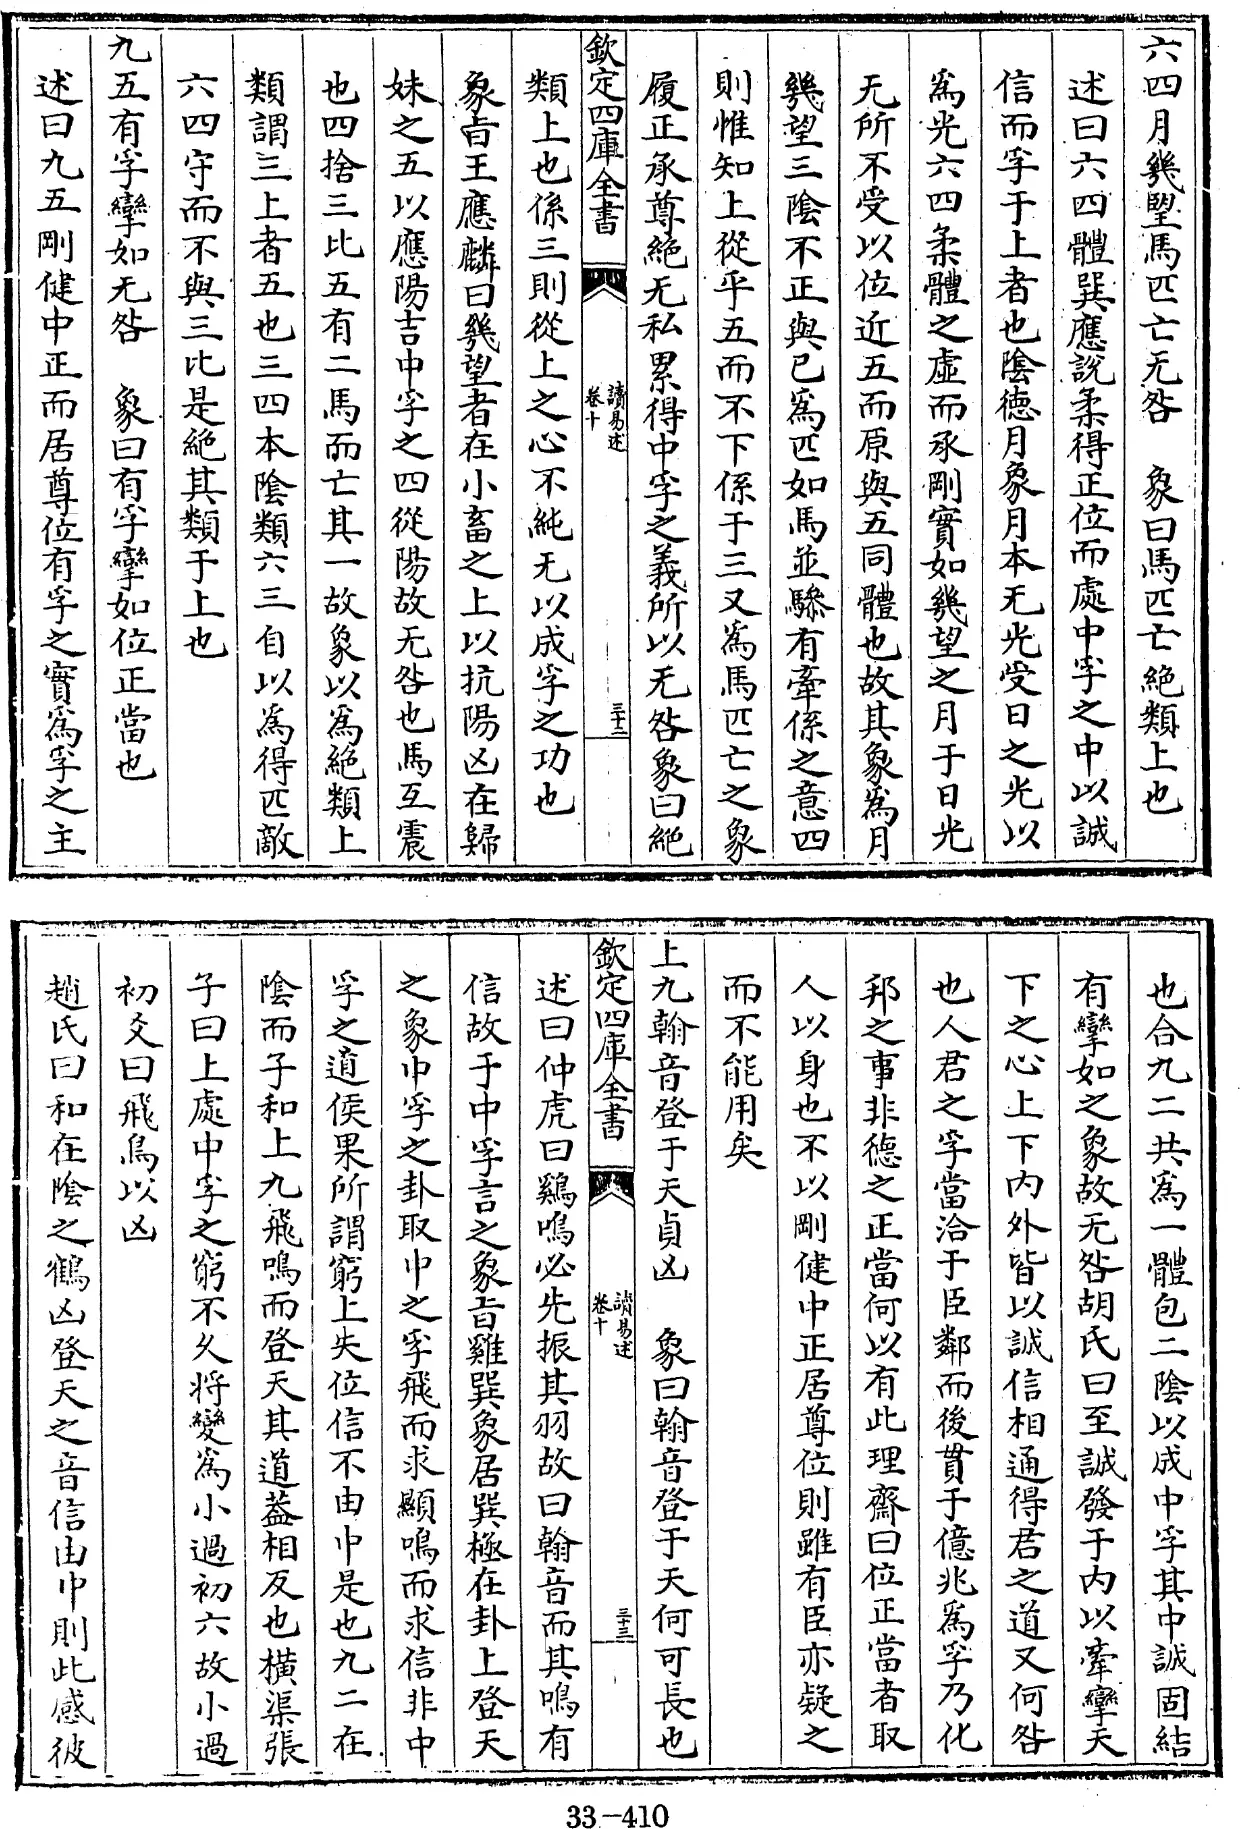 六四月幾望馬匹亡无咎　象曰馬匹亡絶類上也
述曰六四體巽應説柔得正位而處中孚之中以誠
信而孚于上者也陰德月象月本无光受日之光以
為光六四柔體之虛而承剛實如幾望之月于日光
无所不受以位近五而原與五同體也故其象為月
幾望三陰不正與已為匹如馬並驂有牽係之意四
則惟知上從乎五而不下係于三又為馬匹亡之象
履正承尊絶无私累得中孚之義所以无咎象曰絶
欽定四庫全書
讀易述
卷十
三十二
類上也係三則從上之心不純无以成孚之功也
象旨王應麟曰幾望者在小畜之上以抗陽凶在歸
妹之五以應陽吉中孚之四從陽故无咎也馬互震
也四捨三比五有二馬而亡其一故象以為絶類上
類謂三上者五也三四本陰類六三自以為得匹敵
六四守而不與三比是絶其類于上也
九五有孚攣如无咎　象曰有孚攣如位正當也
述曰九五剛健中正而居尊位有孚之實為孚之主
也合九二共為一體包二陰以成中孚其中誠固結
有攣如之象故无咎胡氏曰至誠發于内以牽攣天
下之心上下内外皆以誠信相通得君之道又何咎
也人君之孚當洽于臣鄰而後貫于億兆為孚乃化
邦之事非德之正當何以有此理齋曰位正當者取
人以身也不以剛健中正居尊位則雖有臣亦疑之
而不能用矣
上九翰音登于天貞凶　象曰翰音登于天何可長也
欽定四庫全書
讀易述
卷十
三十三
述曰仲虎曰鷄鳴必先振其羽故曰翰音而其鳴有
信故于中孚言之象旨雞巽象居巽極在卦上登天
之象中孚之卦取中之孚飛而求顯鳴而求信非中
孚之道侯果所謂窮上失位信不由中是也九二在
陰而子和上九飛鳴而登天其道蓋相反也横渠張
子曰上處中孚之窮不久将變為小過初六故小過
初爻曰飛鳥以凶
趙氏曰和在陰之鶴凶登天之音信由中則此感彼
33-410